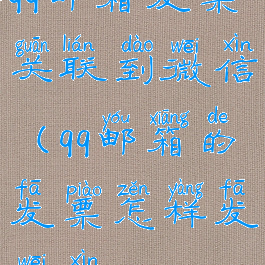 qq邮箱发票
guān lián dào wēi xìn
关联到微信
yóu xiāng de
(qq邮箱的
fā piào zěn yàng fā
发票怎样发
wēi xìn